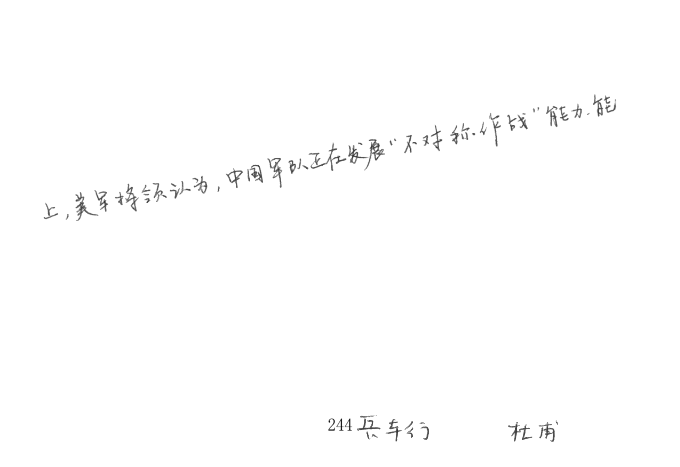 上,美军将领认为,中国军队正在发展“不对称作战”能力.能
244兵车行 杜甫